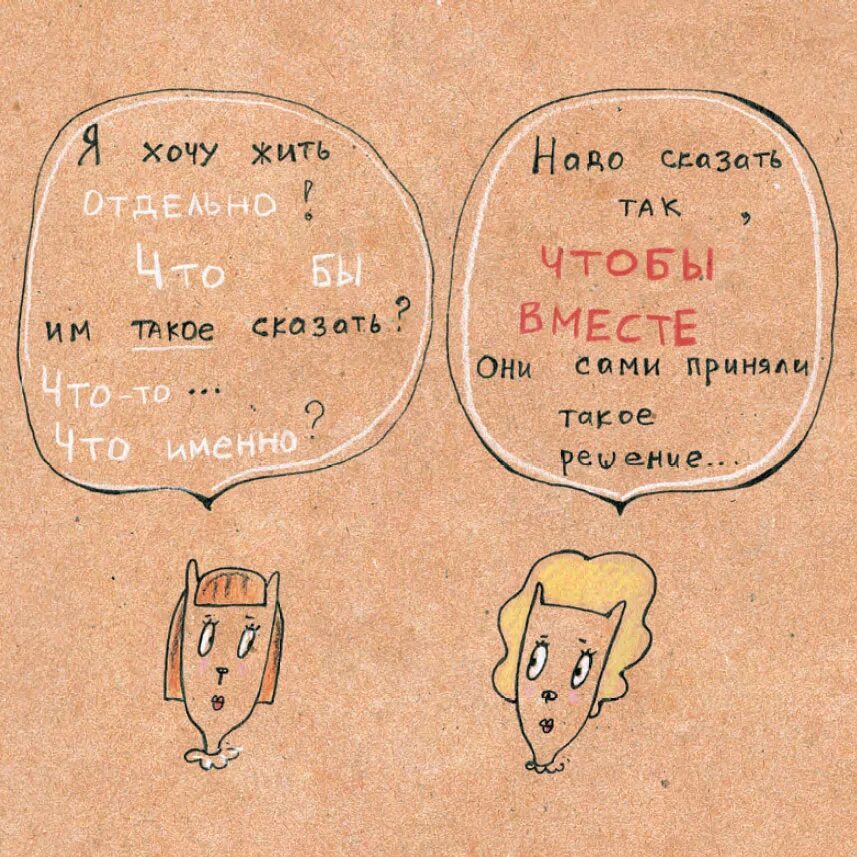 Я хочу жить
отдельно!
Что бы
им такое сказать?
Что-то...
Что именно?
Надо сказать
так,
чтобы
вместе
Они сами приняли
такое
решение...